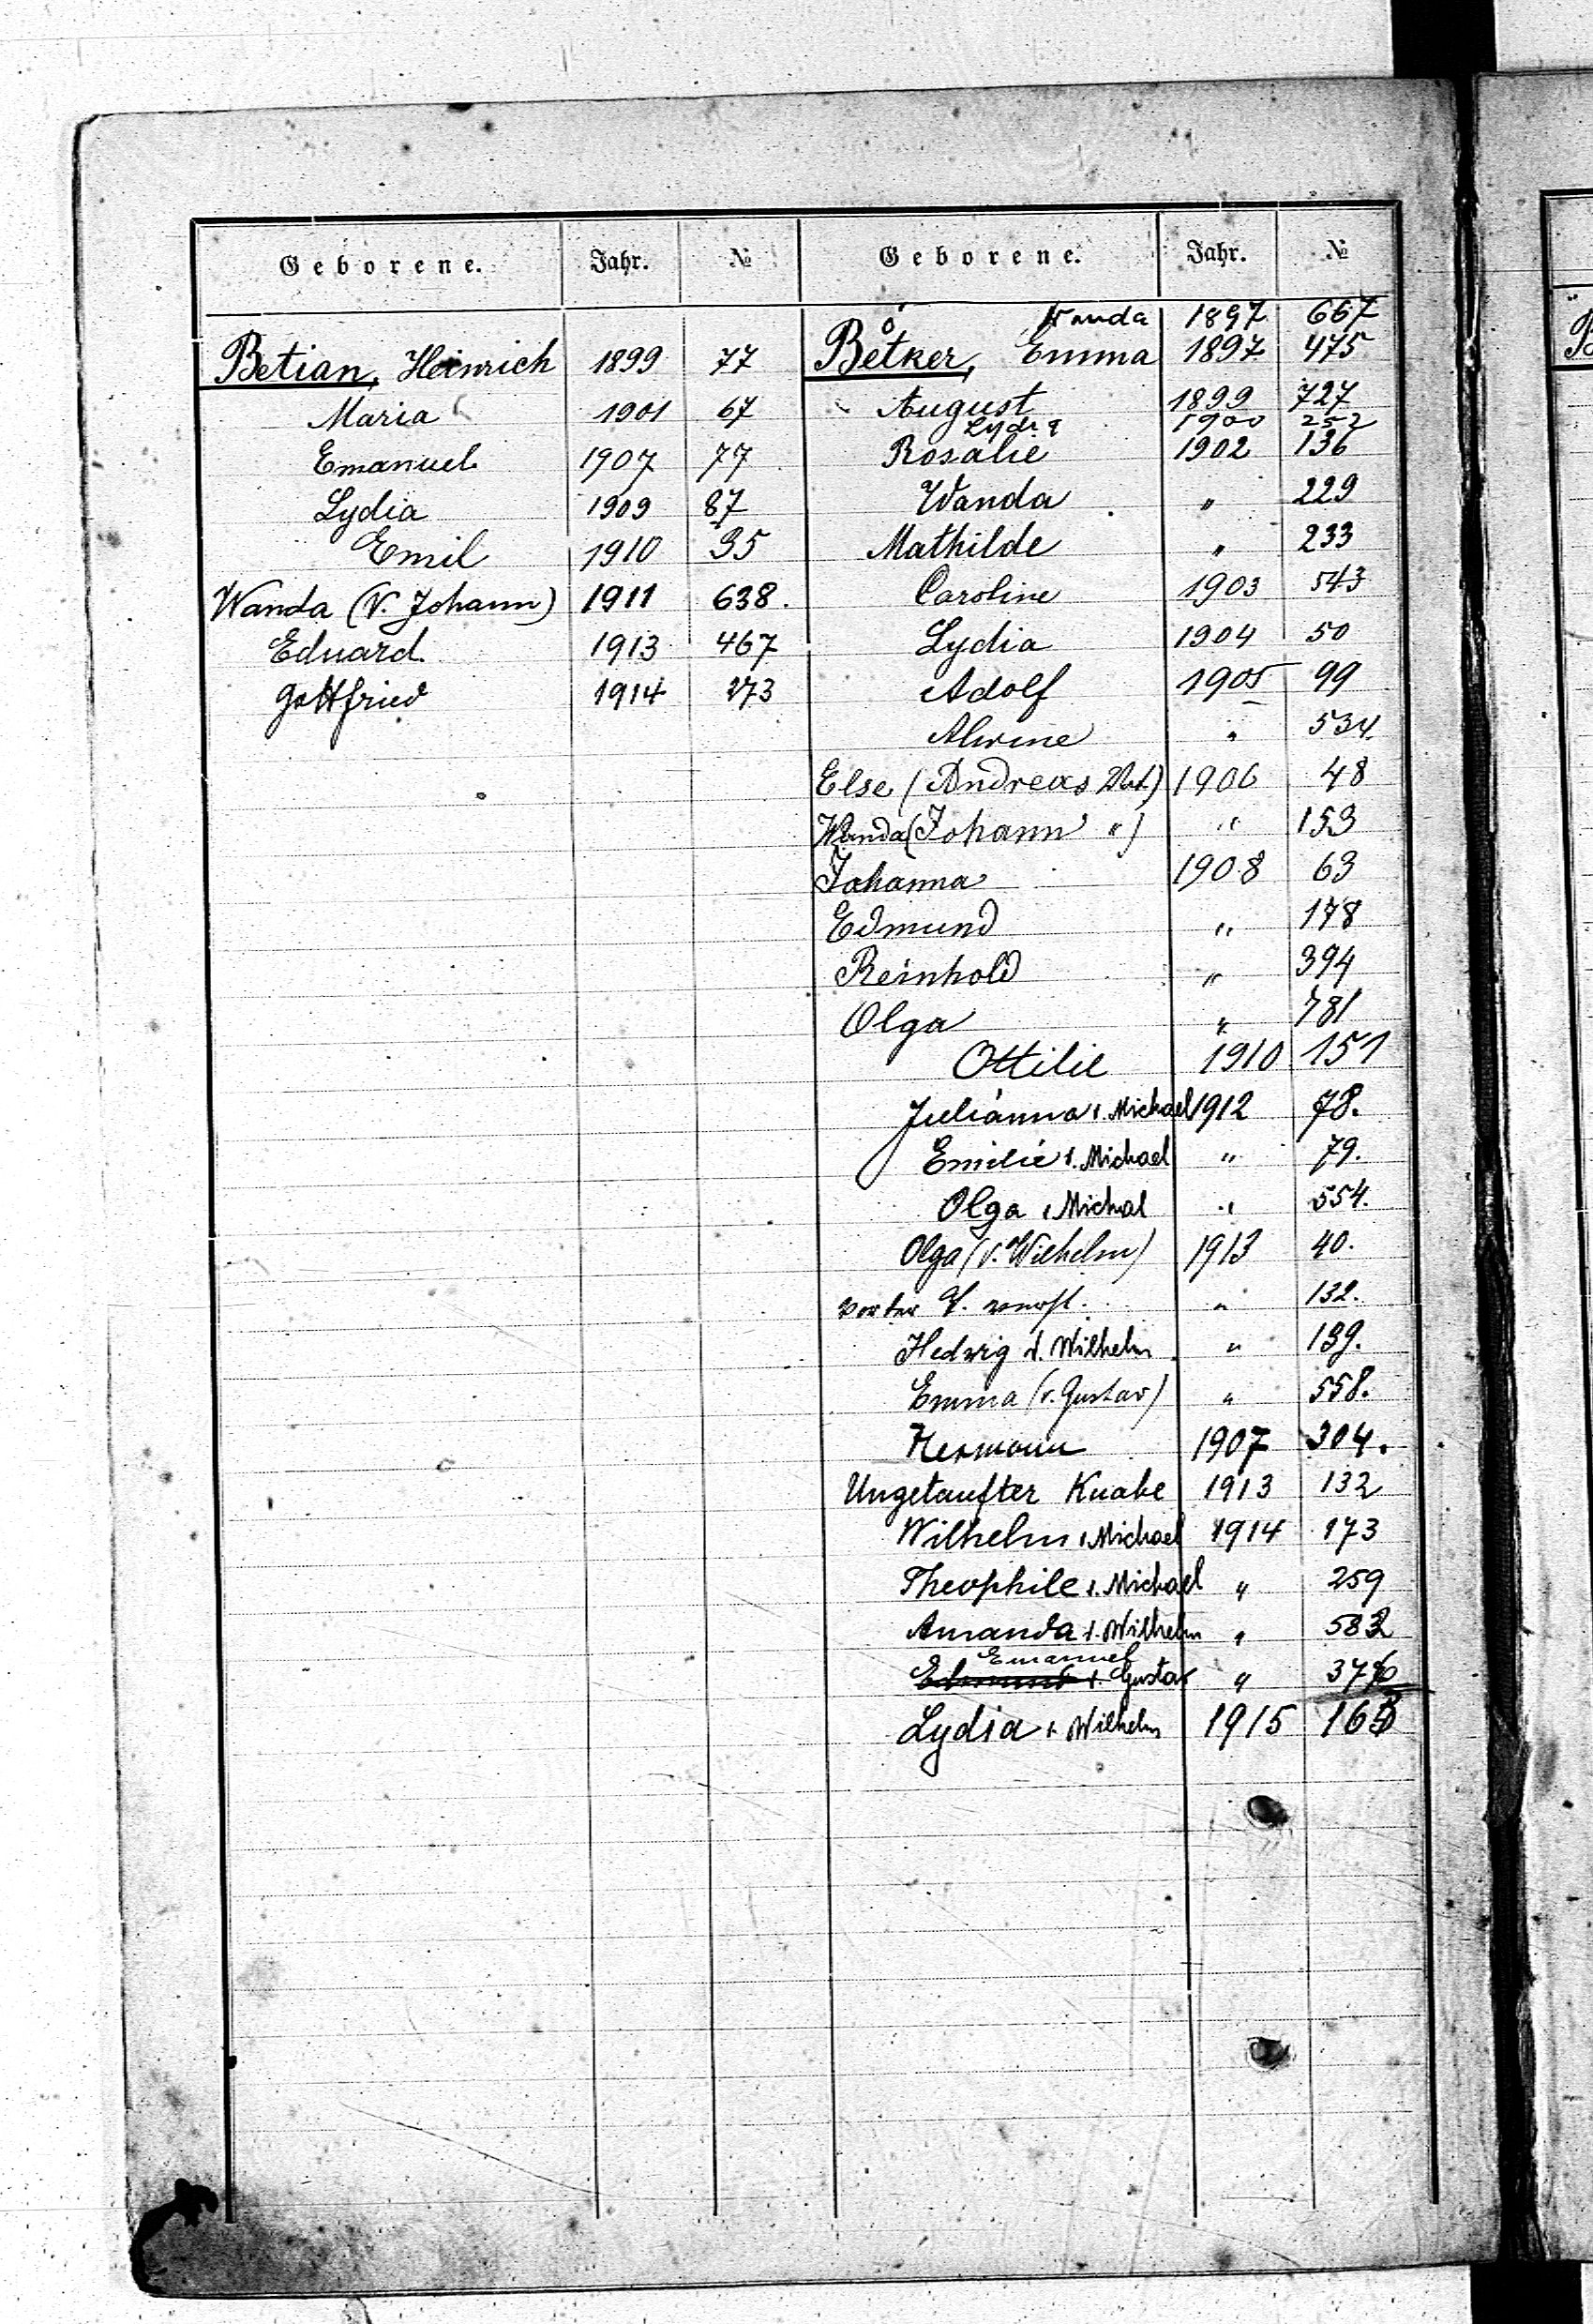 Geborene. Jahr. №
Betian, Heinrich 1899 77
Maria 1901 67
Emanuel 1907 77
Lydia 1909 87
Emil 1910 35
Wanda (v. Johann) 1911 638.
Eduard 1913 467
Gottfried 1914 273
Geborene. Jahr. №
Wanda 1897 667
Betker, Emma 1897 475
August 1899 727
Lydia 1900 252
Rosalie 1902 136
Wanda " 229
Mathilde " 233
Caroline 1903 543
Lydia 1904 50
Adolf 1905 99
Alwine " 534.
Else (Andreas Vat.) 1906 48
Wanda (Johann ") " 153
Johanna 1908 63
Edmund " 178
Reinhold " 394
Olga " 781
Ottilie 1910 151
Julianna v. Michael 1912 78.
Emilie v. Michael " 79.
Olga v. Michal " 554.
Olga (v. Wilhelm) 1913 40.
" 132.
Hedwig v. Wilhelm " 139.
Emma (v. Gustav) " 558.
Hermann 1907 304.
Ungetaufter Knabe 1913 132
Wilhelm v. Michael 1914 173
Theophile v. Michael " 259
Amanda v. Wilhelm " 582
Emanuel
Edmund v. Gustav "
Lydia v. Wilhelm 1915